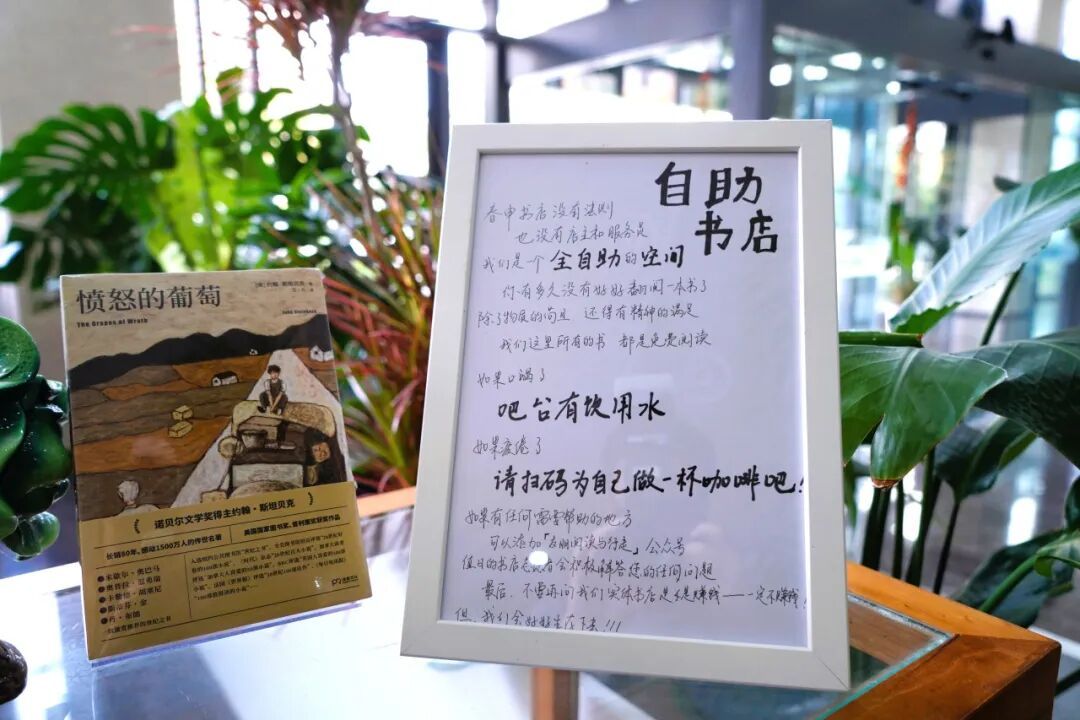 愤怒的葡萄
The Grapes of Wrath
John Steinbeck
诺贝尔文学奖得主约翰·斯坦贝克
长销80年、感动1500万人的传世名著
美国国家图书奖、普利策奖获奖作品
米歇尔·奥巴马
奥普拉·温弗瑞
卡勒德·胡赛尼
斯蒂芬·金
自助
书店
春申书店没有法则
也没有店主和服务员
我们是一个 全自助的空间
你有多久没有好好翻阅一本书了
除了物质的苟且 还得有精神的满足
我们这里所有的书 都是免费阅读
如果口渴了
吧台有饮用水
如果疲倦了
请扫码为自己做一杯咖啡吧!
如果有任何需要帮助的地方
可以添加「友朋阅读与行走」公众号
值日的书店 会积极解答您的任何问题
最后,不要再问我们实体书店是不是赚钱——一定不赚钱!
但,我们会好好生存下去!!!